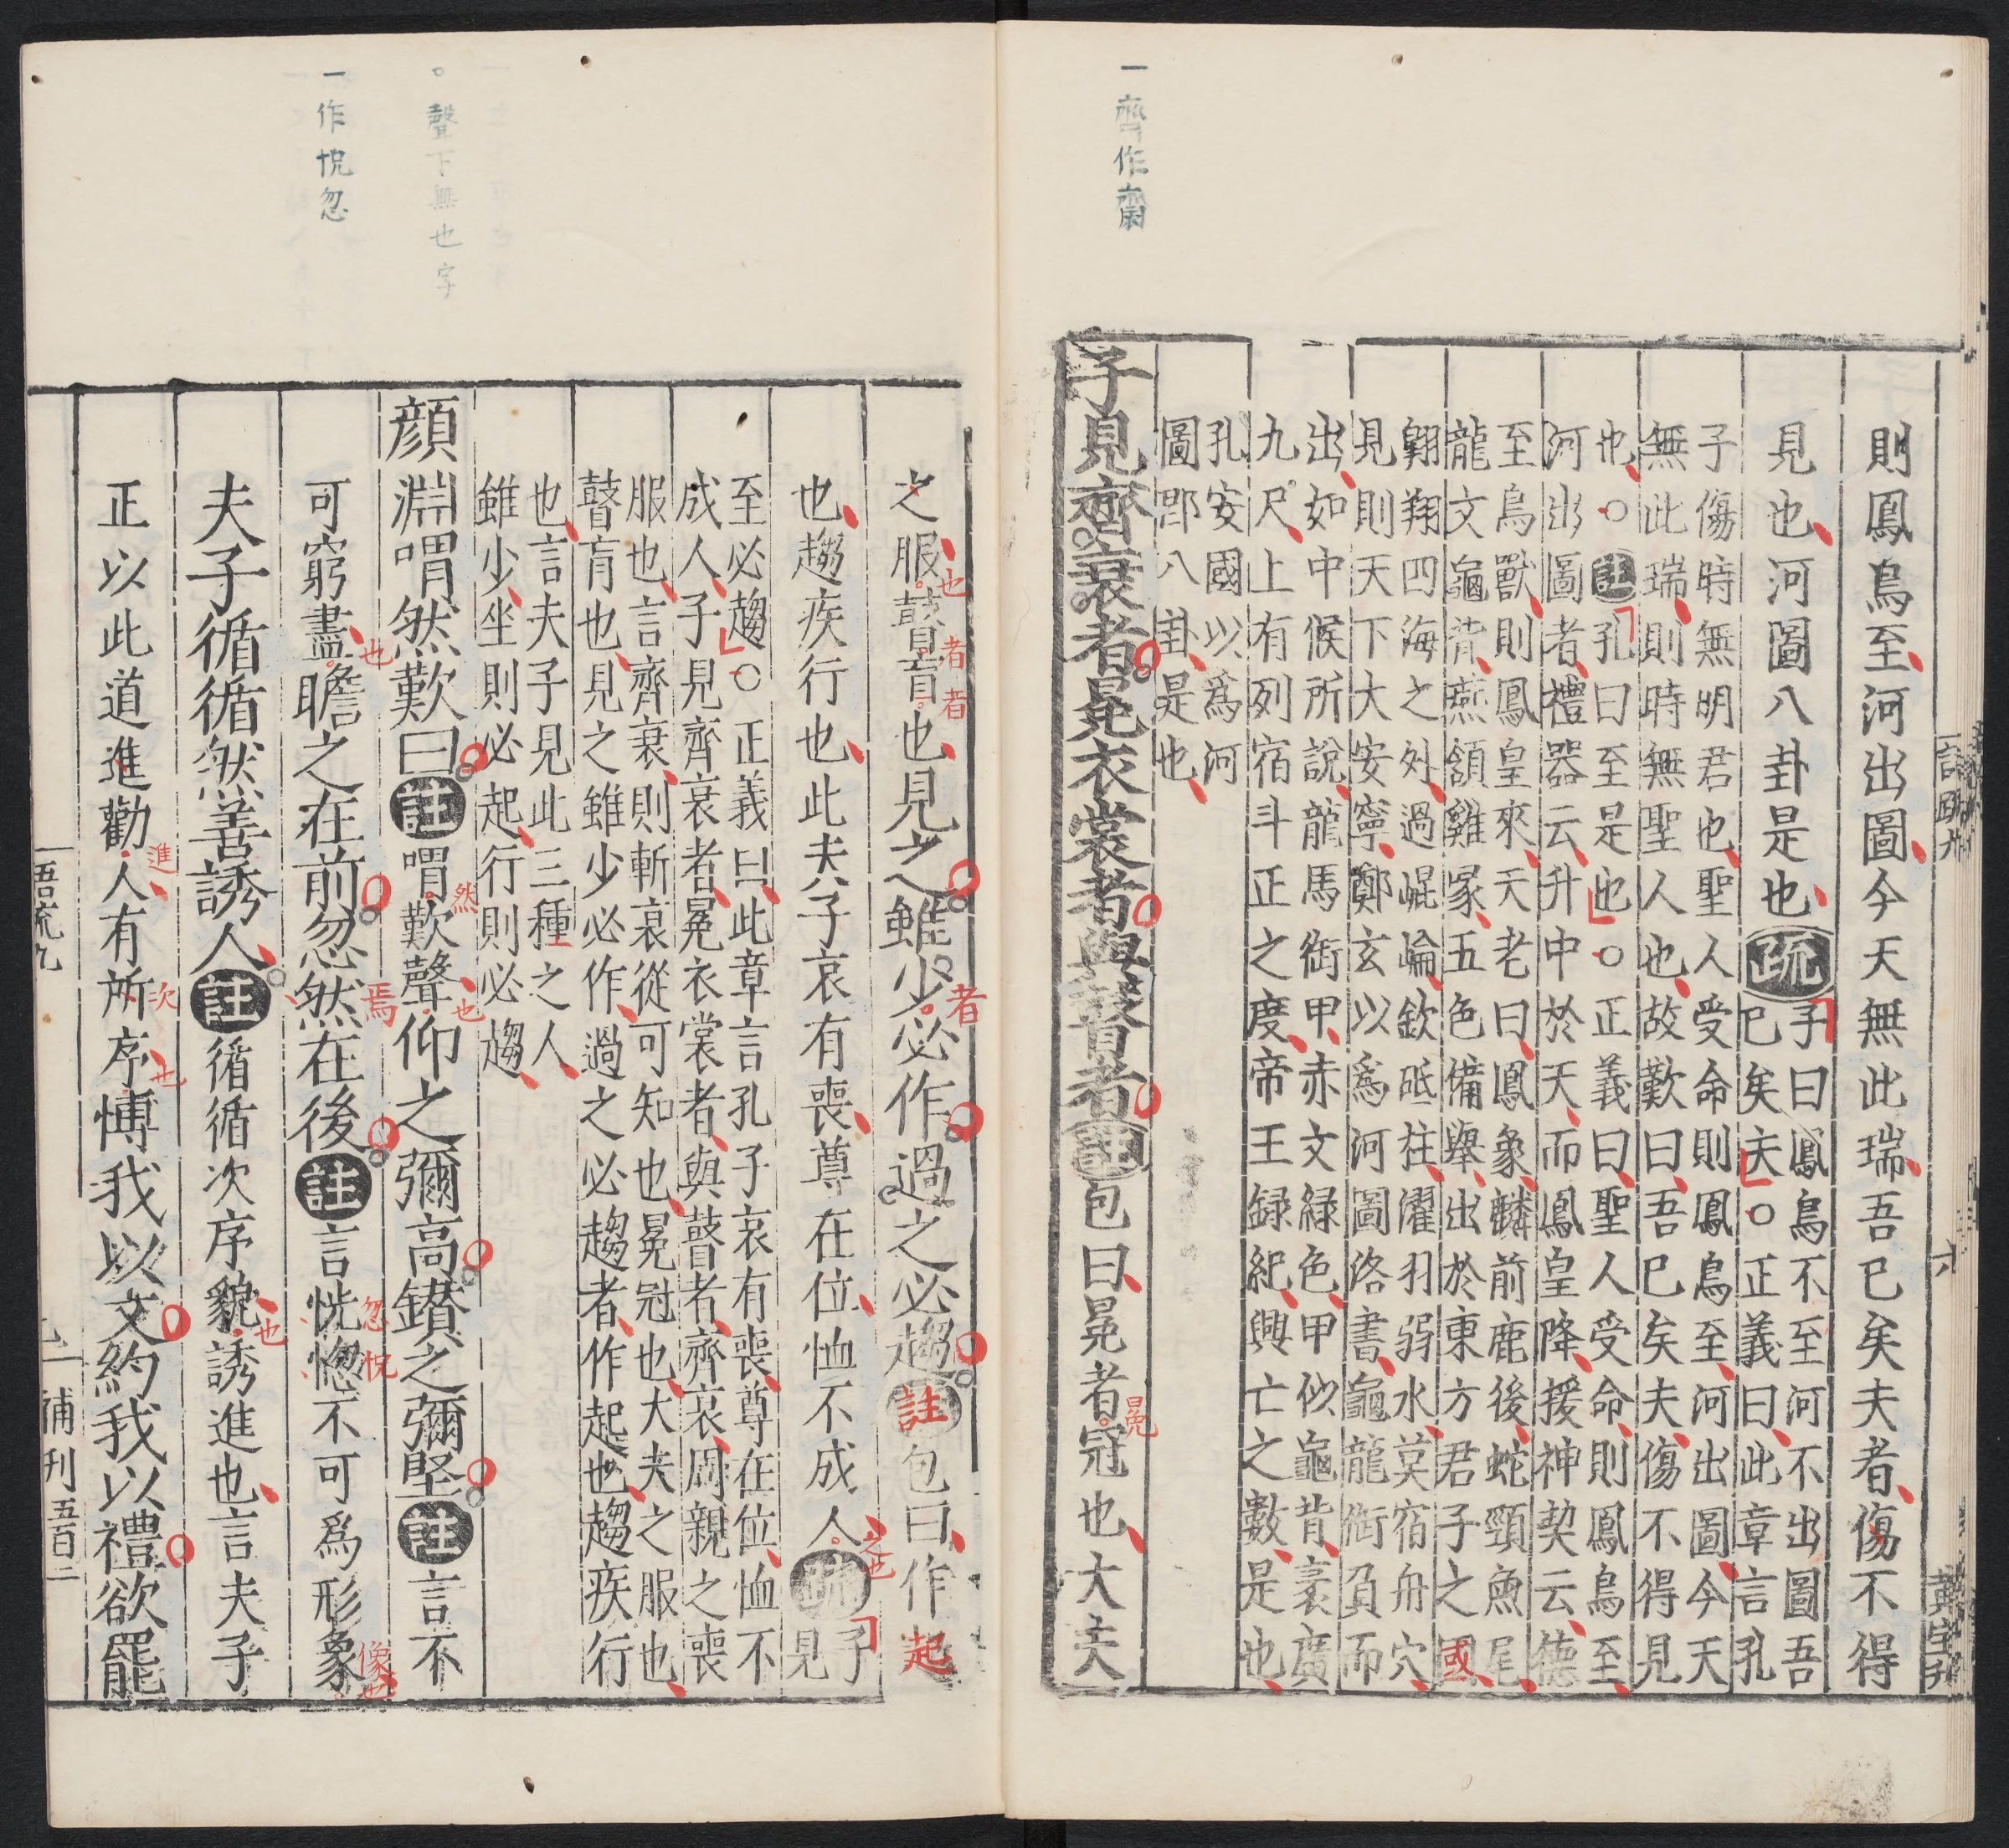 一齊作齋
則鳳鳥至河出圖今天無此瑞吾已矣夫者傷不得
見也河圖八卦是也疏
子曰鳳鳥不至河不出圖吾
已矣夫○正義曰此章言孔
子傷時無明君也聖人受命則鳳鳥至河出圖今天
無此瑞則時無聖人也故歎曰吾已矣夫傷不得見
也○註孔曰至是也○正義曰聖人受命則鳳鳥至
河出圖者禮器云升中於天而鳳皇降援神契云德
至鳥獸則鳳皇來天老曰鳳象麟前鹿後蛇頸魚尾
龍文龜背燕頷雞冡五色備舉出於東方君子之國
翱翔四海之外過崐崘歃砥柱濯羽弱水莫宿舟穴
見則天下大安寧鄭玄以爲河圖洛書龜龍銜負而
出如中候所說龍馬銜甲赤文緑色甲似龜背袤廣
九尺上有列宿斗正之度帝王録紀興亡之數是也
孔安國以爲河
圖即八卦是也
子見齊衰者冕衣裳者與瞽者註包曰冕者冠也大夫
冕
國
一作怳忽
聲下無也字
之服瞽盲也見之雖少必作過之必趨註包曰作起
也者者者
也趨疾行也此夫子哀有喪尊在位恤不成人疏
之也
子
見
至必趨○正義曰此章言孔子哀有喪尊在位恤不
成人子見齊衰者冕衣裳者與瞽者齊衰周親之喪
服也言齊衰則斬衰從可知也冕冠也大夫之服也
瞽盲也見之雖少必作過之必趨者作起也趨疾行
也言夫子見此三種之人
雖少坐則必起行則必趨
顔淵喟然歎曰註喟歎聲仰之彌高鑚之彌堅註言不
然也
可窮盡瞻之在前忽然在後註言恍惚不可爲形象
也焉忽怳像也
夫子循循然善誘人註循循次序貌誘進也言夫子
也
正以此道進勸人有所序博我以文約我以禮欲罷
進次也
補刊五百二